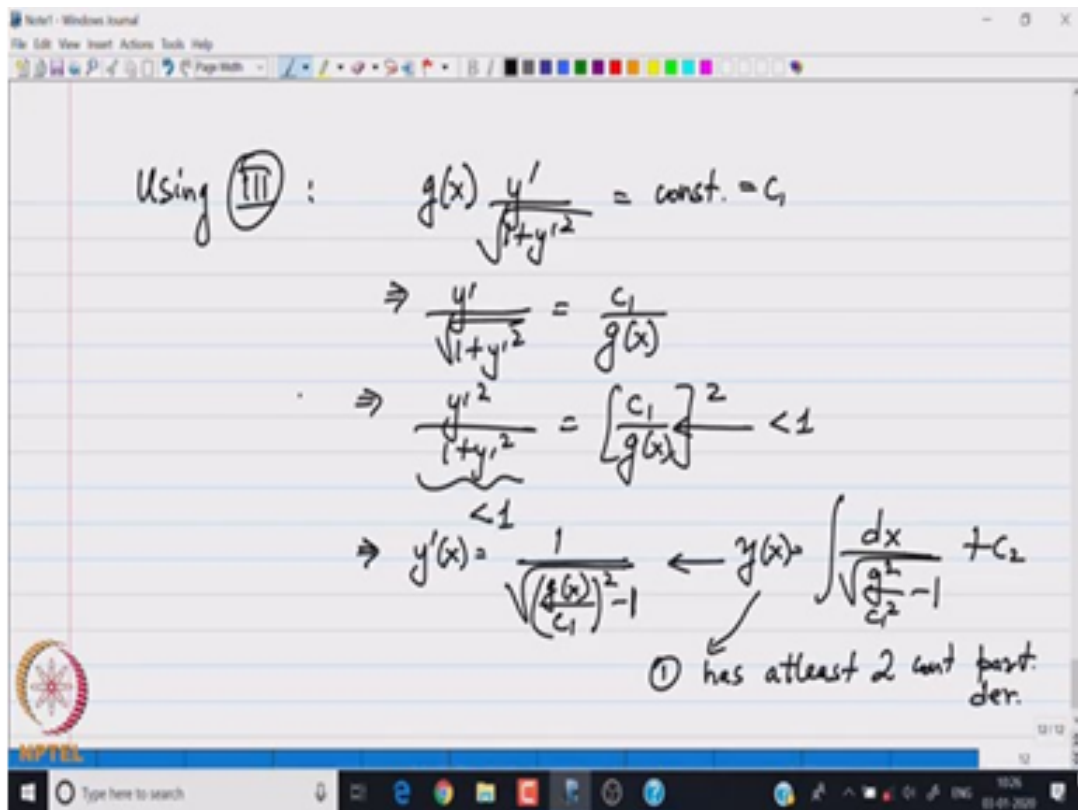 Note1 - Windows Journal
File Edit View Insert Actions Tools Help
Page Width
B I
Using III : g(x) y' / √(1+y'²) = const. = C₁
⇒ y' / √(1+y'²) = C₁ / g(x)
⇒ y'² / (1+y'²) = [C₁ / g(x)]² < 1
< 1
⇒ y'(x) = 1 / √((g(x)/C₁)² - 1) ← y(x) = ∫ dx / √(g²/C₁² - 1) + C₂
① has atleast 2 cont part.
der.
12/12
12
NPTEL
Type here to search
ENG
10:26